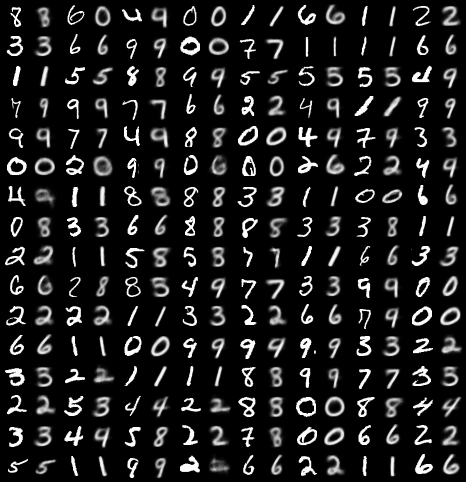 8 8 6 0 4 9 0 0 1 1 6 6 1 1 2 2
3 3 6 6 9 9 0 0 7 7 1 1 1 1 6 6
1 1 5 5 8 8 9 9 5 5 5 5 5 5 4 9
7 9 9 9 7 7 6 6 2 2 4 9 1 1 9 9
9 9 7 7 4 9 8 8 0 0 4 9 7 9 3 3
0 0 2 0 9 9 0 6 0 0 2 6 2 2 4 9
4 9 1 1 8 8 8 8 3 3 1 1 0 0 6 6
0 8 3 3 6 6 8 8 8 8 3 3 3 8 1 1
2 2 1 1 5 8 5 3 7 7 1 1 6 6 3 3
6 6 2 8 8 5 4 9 7 7 3 3 9 9 0 0
2 2 2 2 1 1 3 3 2 2 6 6 7 9 0 0
6 6 1 1 0 0 9 9 9 9 9 9 3 3 2 2
3 3 2 2 1 1 1 1 8 8 9 9 7 7 3 3
2 2 5 3 4 4 2 2 8 8 0 0 8 8 4 4
3 3 4 9 5 8 2 2 7 8 0 0 6 6 2 2
5 5 1 1 9 9 2 6 6 2 2 1 1 6 6